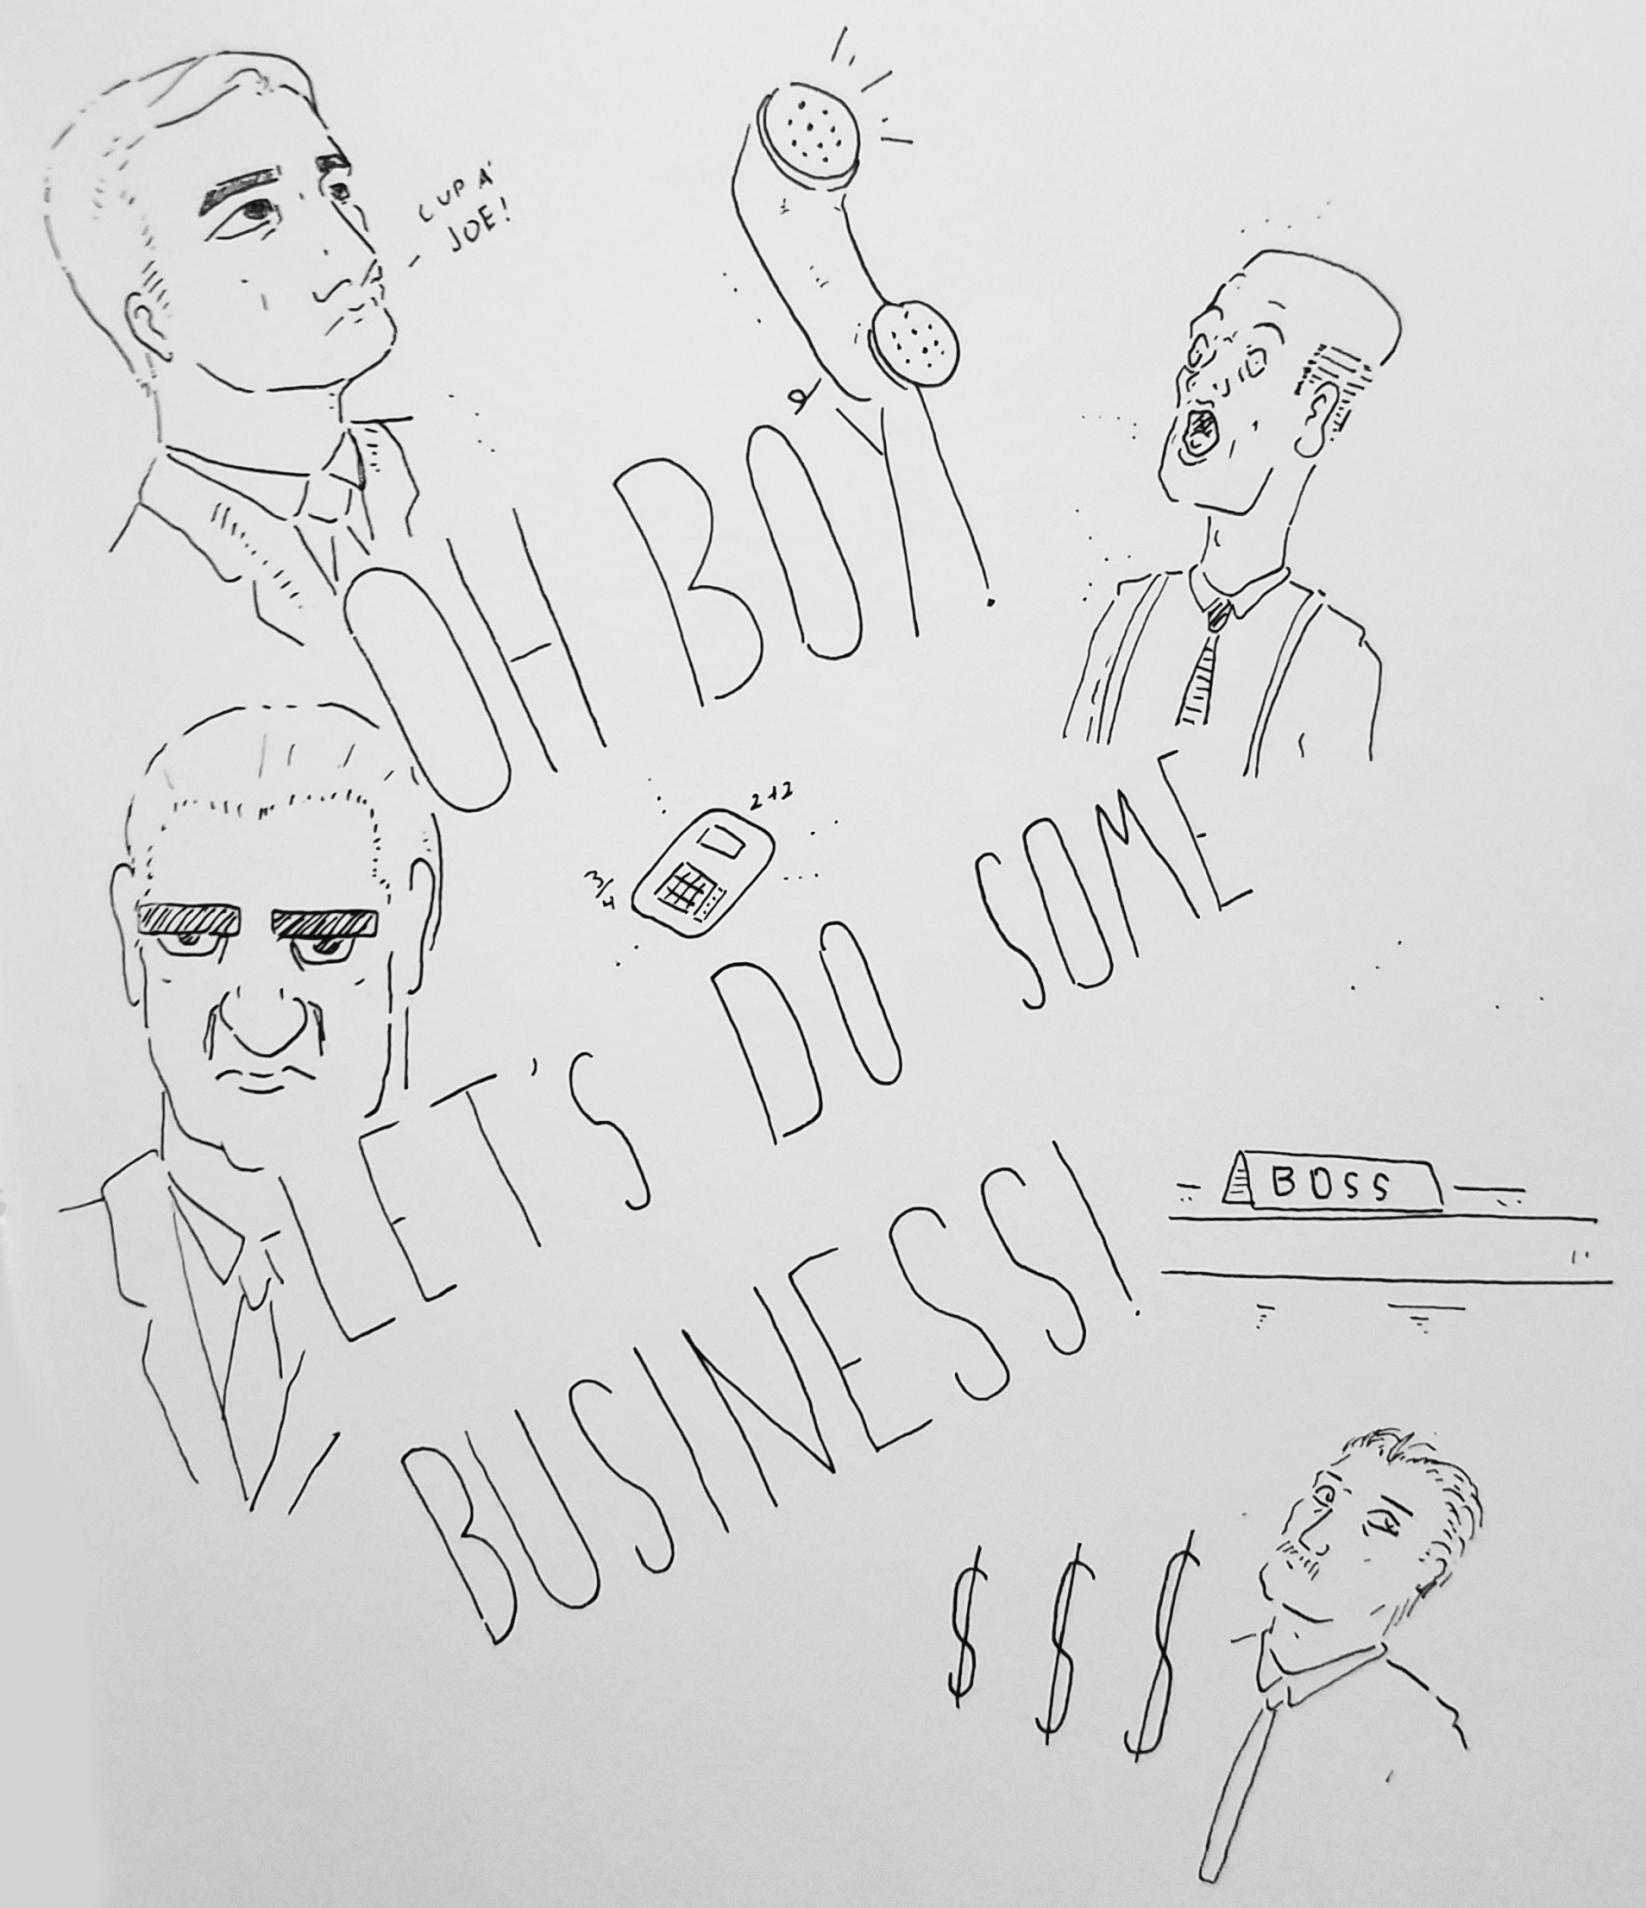 CUP A'
JOE!
OH BOY!
2+2
3/4
LET'S DO SOME
BUSINESS!
BOSS
$ $ $